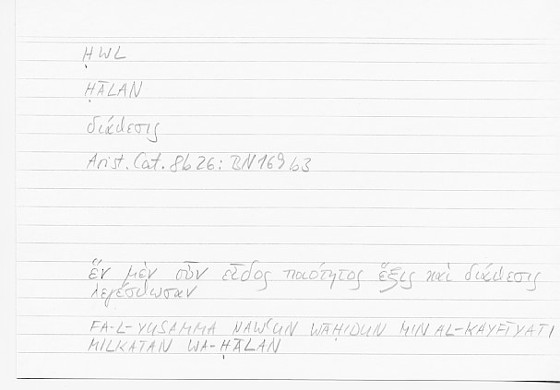 ḤWL
ḤĀLAN
διάθεσις
Arist. Cat. 8b26: BN 169b3
ἓν μὲν οὖν εἶδος ποιότητος ἕξις καὶ διάθεσις
λεγέσθωσαν
FA-L-YUSAMMA NAWʿUN WĀḤIDUN MIN AL-KAYFĪYATI
MILKATAN WA-ḤĀLAN